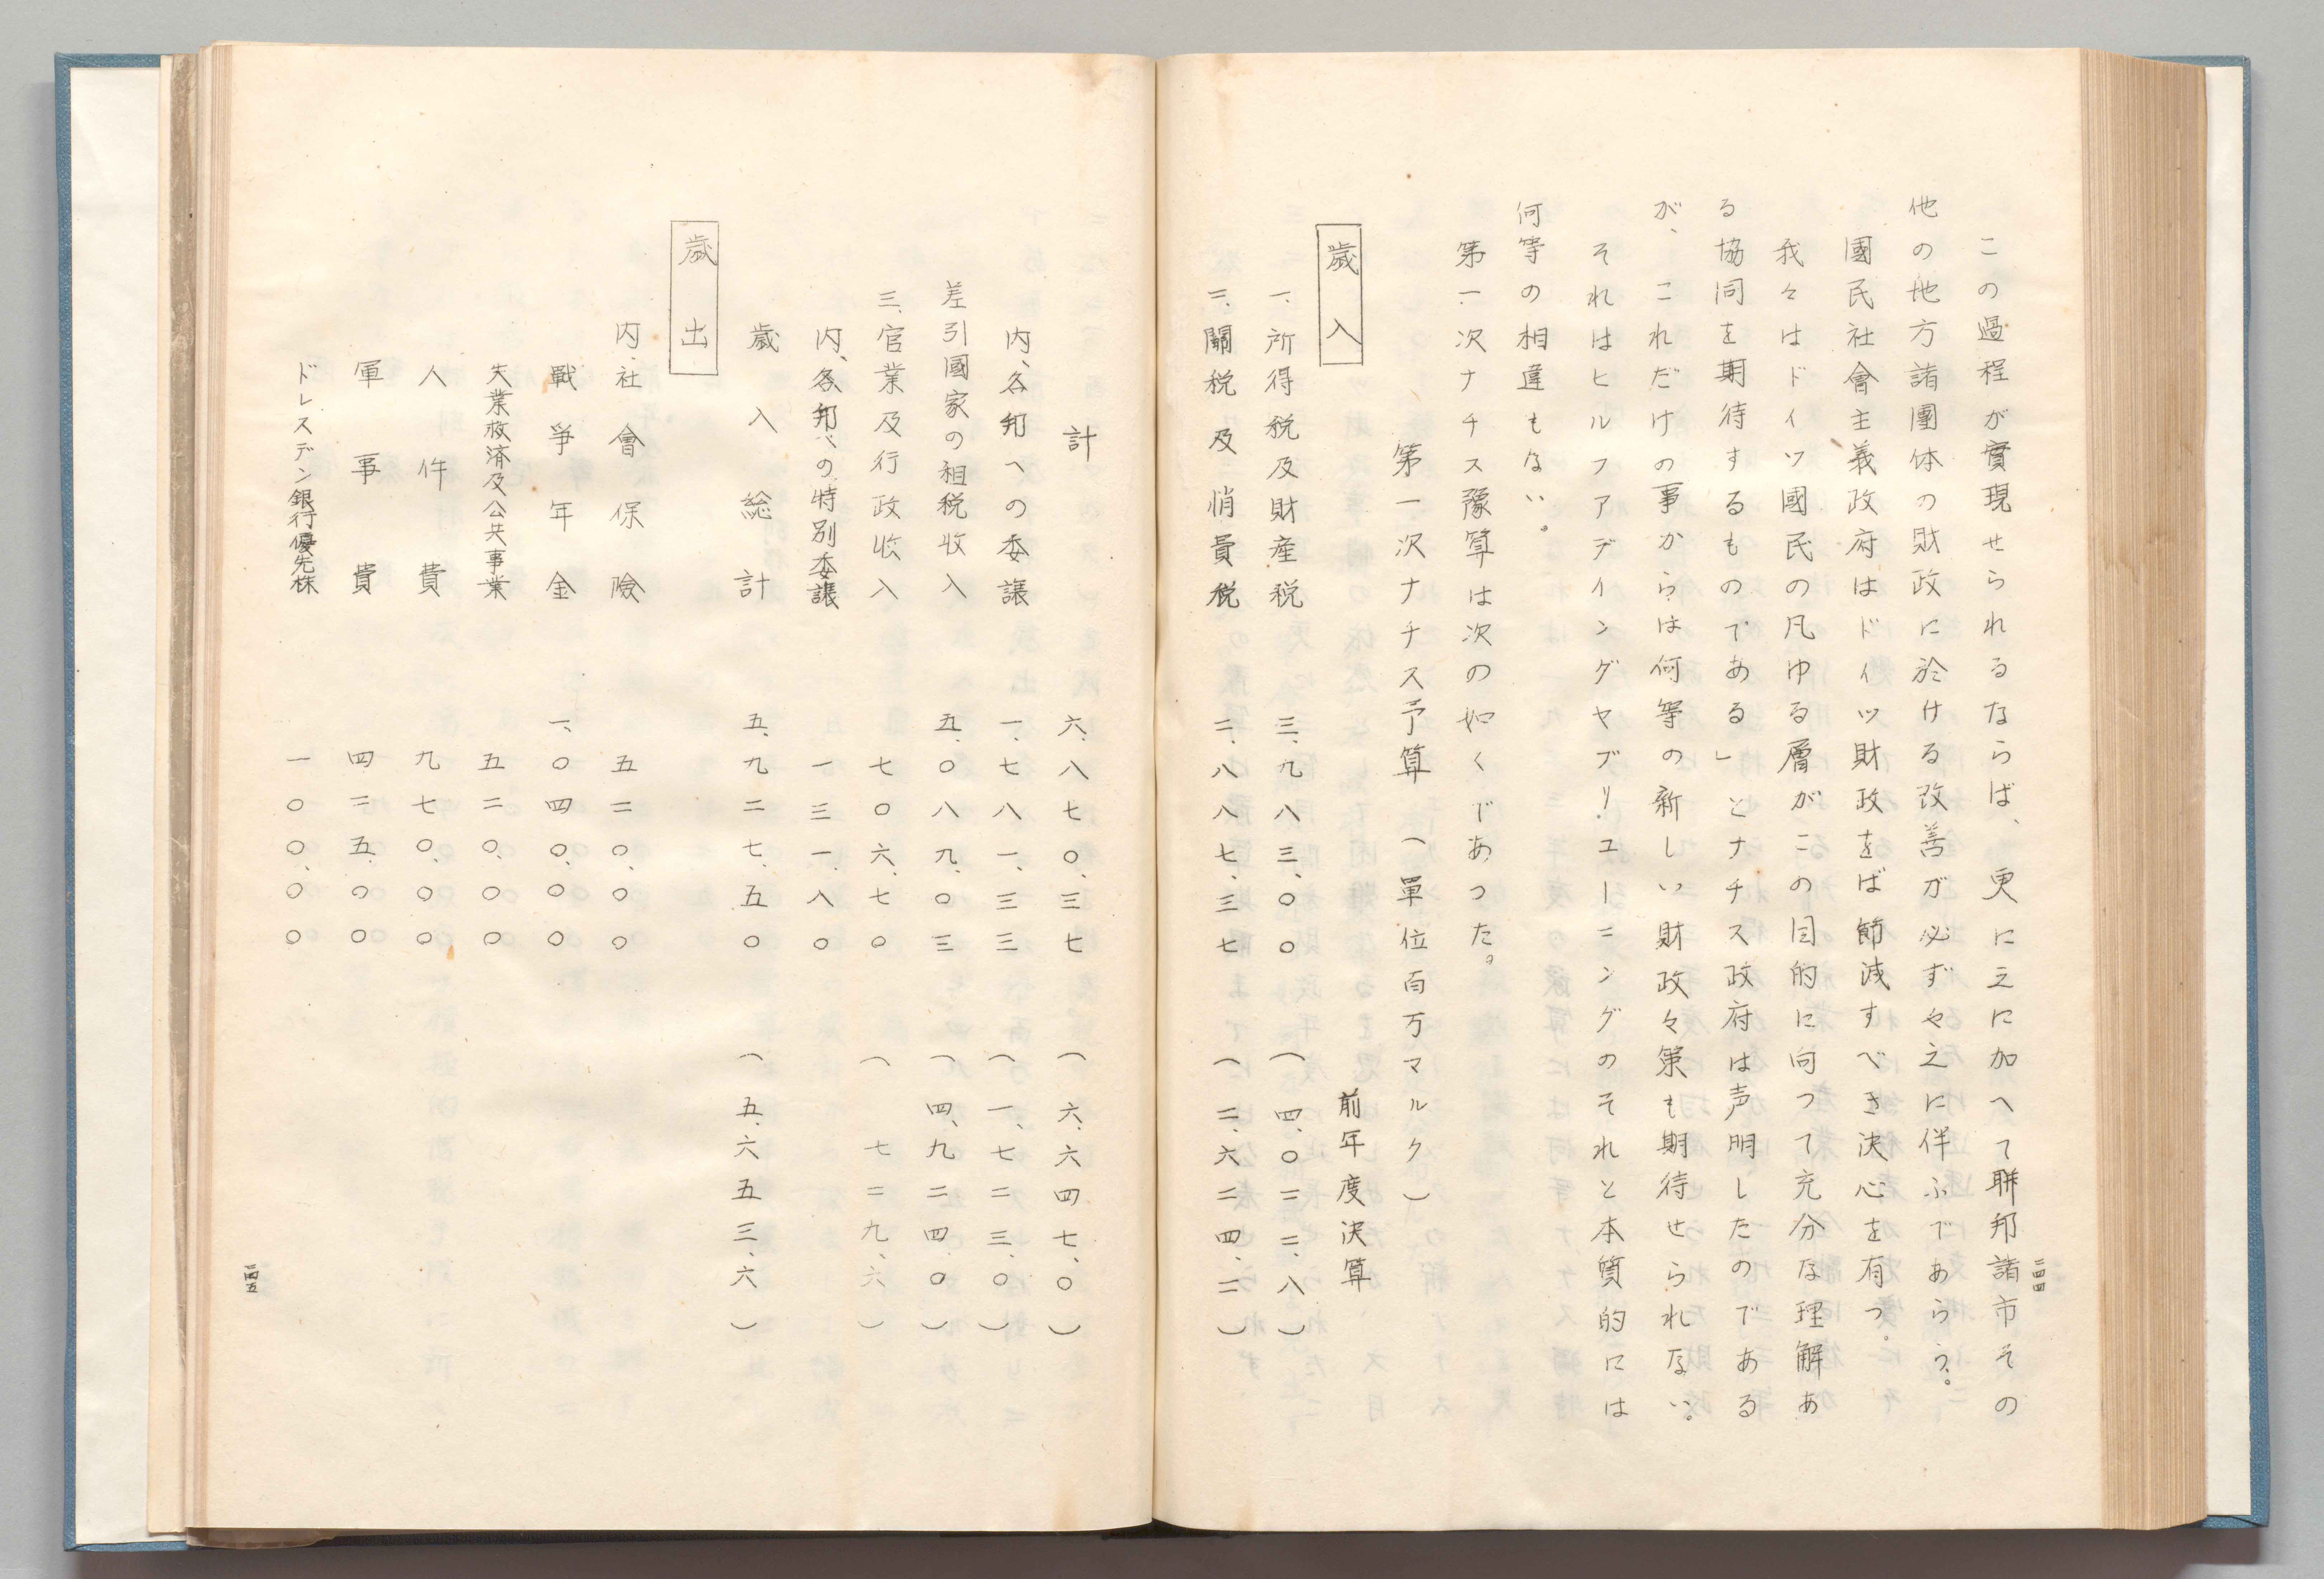 この過程が實現せられるならば、更に之に加へて聯邦諸市その
他の地方諸團体の財政に於ける改善が必ずや之に伴ふであらう。
國民社會主義政府はドイツ財政をば節減すべき決心を有つ。
我々はドイツ國民の凡ゆる層がこの目的に向つて充分な理解あ
る協同を期待するものである」とナチス政府は声明したのである
が、これだけの事からは何等の新しい財政々策も期待せられない。
それはヒルファデイングヤブリ.ユーニングのそれと本質的には
何等の相違もない。
第一次ナチス豫算は次の如くであつた。
第一次ナチス予算(單位百万マルク)
歳入 前年度決算
一、所得税及財産税 三、九八三、〇〇 (四、〇二二、八)
二、關税及消費税 二、八八七、三七 (二、六二四、二)
二四四
計 六、八七〇、三七 (六、六四七、〇)
内、各邦への委譲 一、七八一、三三 (一、七二三、〇)
差引國家の租税收入 五、〇八九、〇三 (四、九二四、〇)
三、官業及行政收入 七〇六、七〇 (七二九、六)
内、各邦への特別委譲 一三一、八〇
歳入総計 五、九二七、五〇 (五、六五三、六)
歳出
内、社會保險 五二〇、〇〇
戰爭年金 一、〇四〇、〇〇
失業救済及公共事業 五二〇、〇〇
人件費 九七〇、〇〇
軍事費 四二五、〇〇
ドレスデン銀行優先株 一〇〇、〇〇
二四五